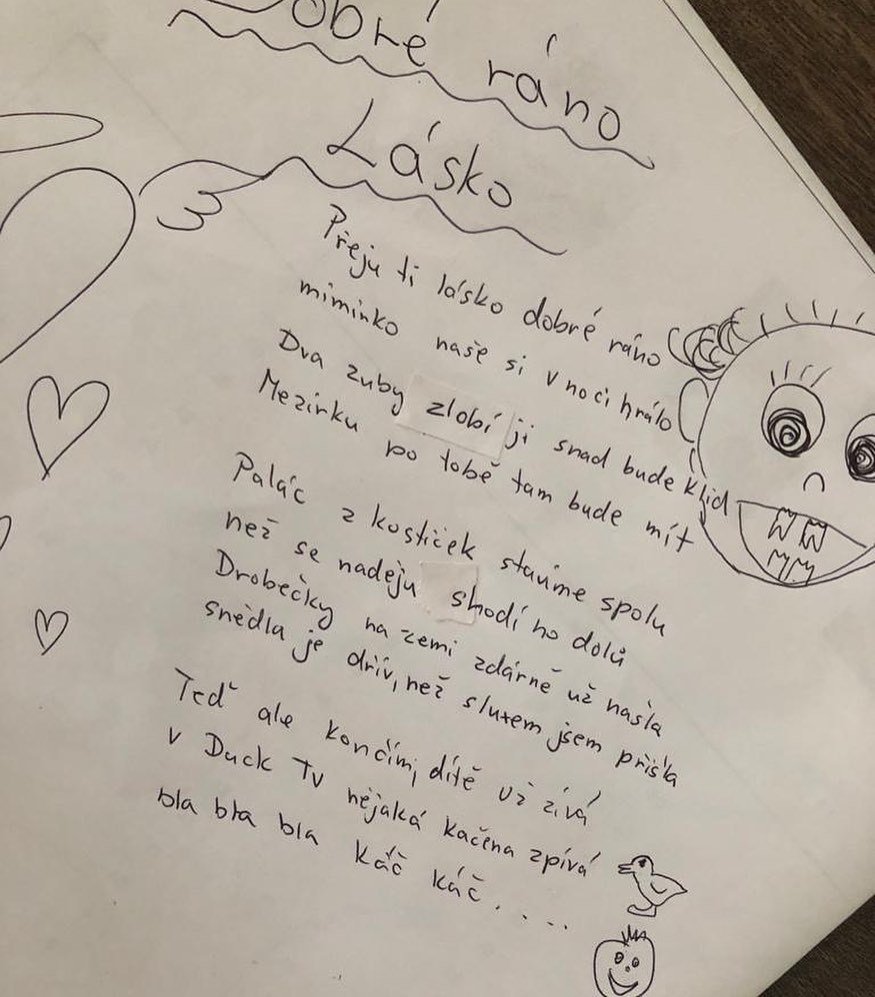 Dobré ráno
Lásko
Přeju ti lásko dobré ráno
miminko naše si v noci hrálo
Dva zuby zlobí ji snad bude klid
Mezírku po tobě tam bude mít
Palác z kostiček stavíme spolu
než se naděju shodí ho dolů
Drobečky na zemi zdárně už našla
snědla je dřív, než s luxem jsem přišla
Teď ale končím, dítě už zívá
v Duck TV nějaká kačena zpívá
bla bla bla káč káč....